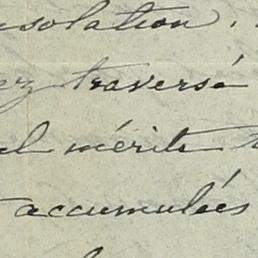 solation.
ez traversé
mérite
accumulées